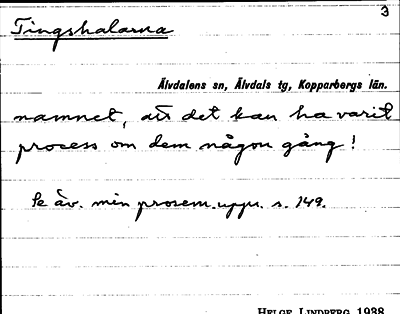 3
Tingshalarna
Älvdalens sn, Älvdals tg, Kopparbergs län.
namnet, att det kan ha varit
process om dem någon gång!
Se äv. min prosem.upps. s. 149.
HELGE LINDBERG 1938